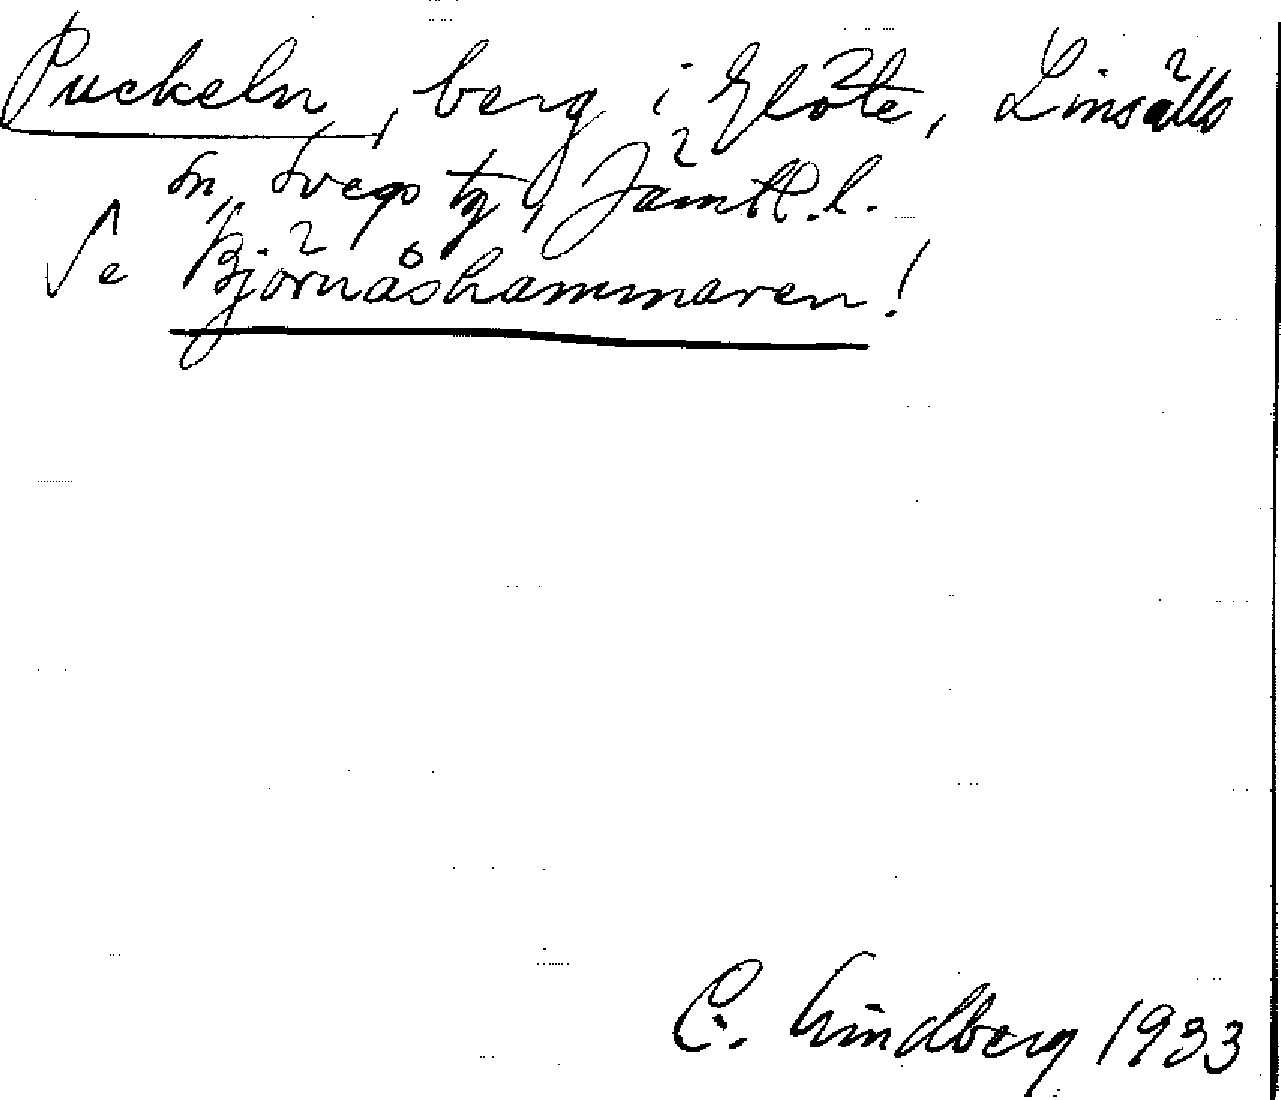 Puckeln, berg i Glöte, Linsälls
sn, Svegs tg, Jämtl. l.
Se Björnåshammaren!
C. Lindberg 1933